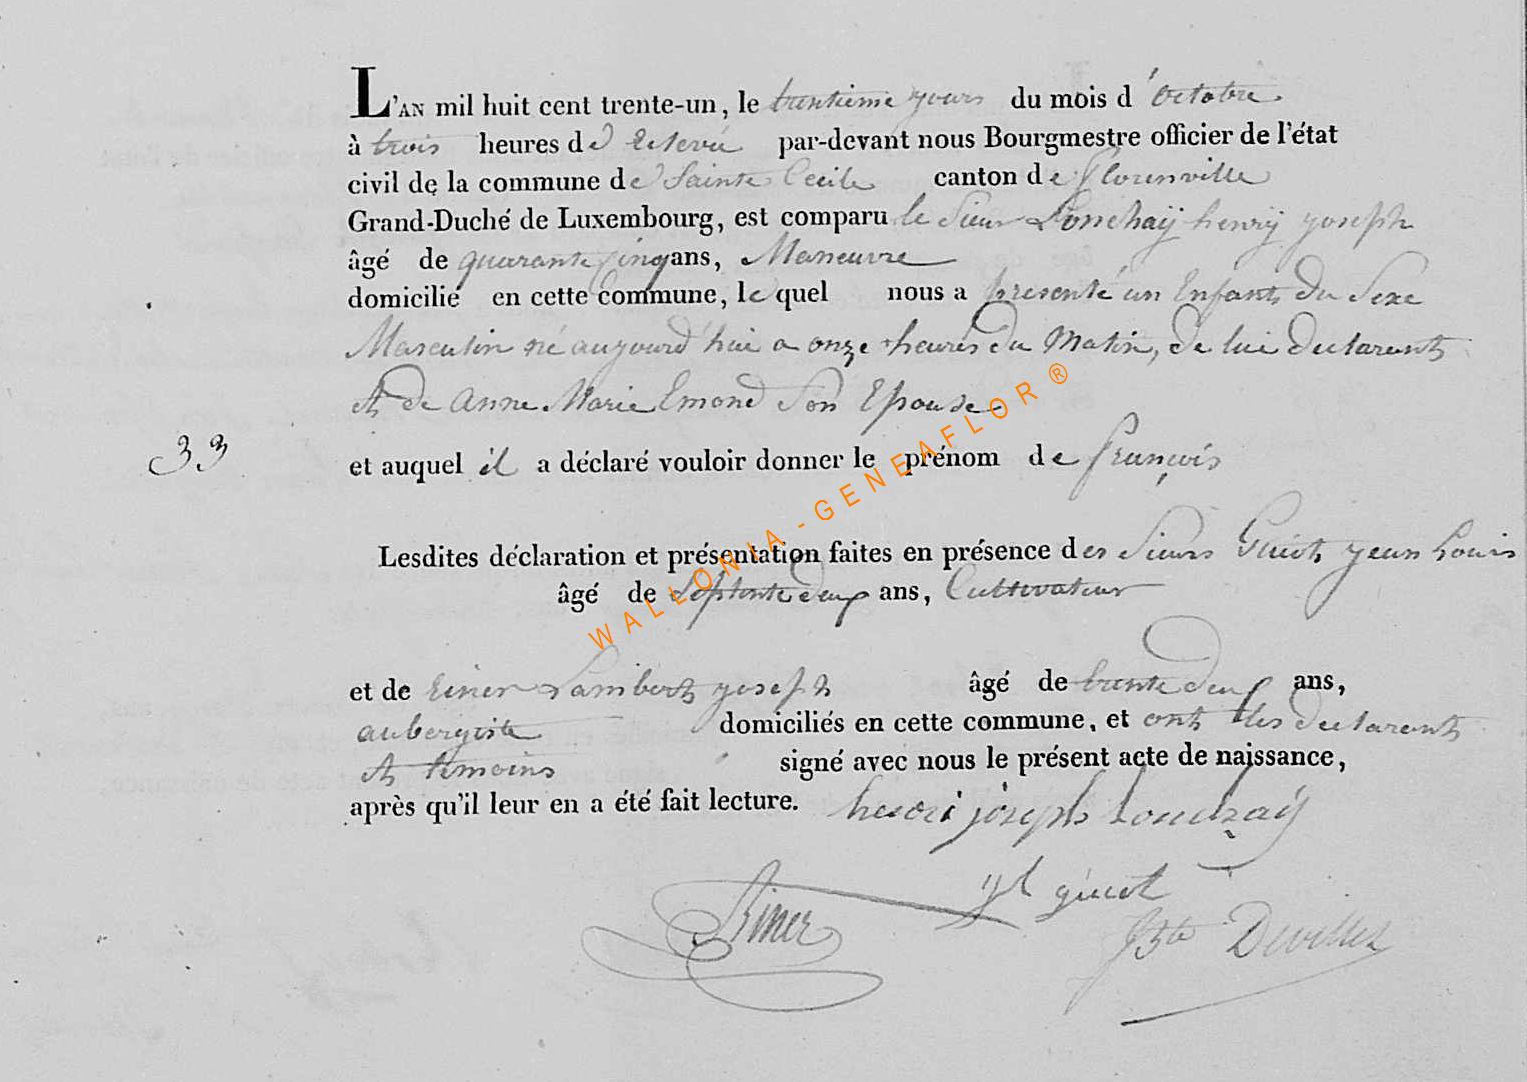 L'AN mil huit cent trente-un, le trentieme yours du mois d'octobre
à trois heures de relevée par-devant nous Bourgmestre officier de l'état
civil de la commune de Sainte Cecile canton de florenville
Grand-Duché de Luxembourg, est comparu le Sieur Lonchaÿ henrÿ yoseph
âgé de quarante cinq ans, Maneuvre
domicilié en cette commune, le quel nous a presenté un Enfant du Sexe
Masculin né auyourd'hui a onze heures du Matin, de lui declarent
et de anne Marie Emond Son Epouse
33 et auquel il a déclaré vouloir donner le prénom de françois
Lesdites déclaration et présentation faites en présence des Sieurs Guiot yean Louis
âgé de Septente deux ans, Cultivateur
et de Riner Lambert yoseph âgé de trente deux ans,
aubergiste domiciliés en cette commune, et ont les declarent
et temoins signé avec nous le présent acte de naissance,
après qu'il leur en a été fait lecture. henri joseph Lonchaÿ
yl guiot
Riner
JBte Devillez
WALLONIA-GENEAFLOR®